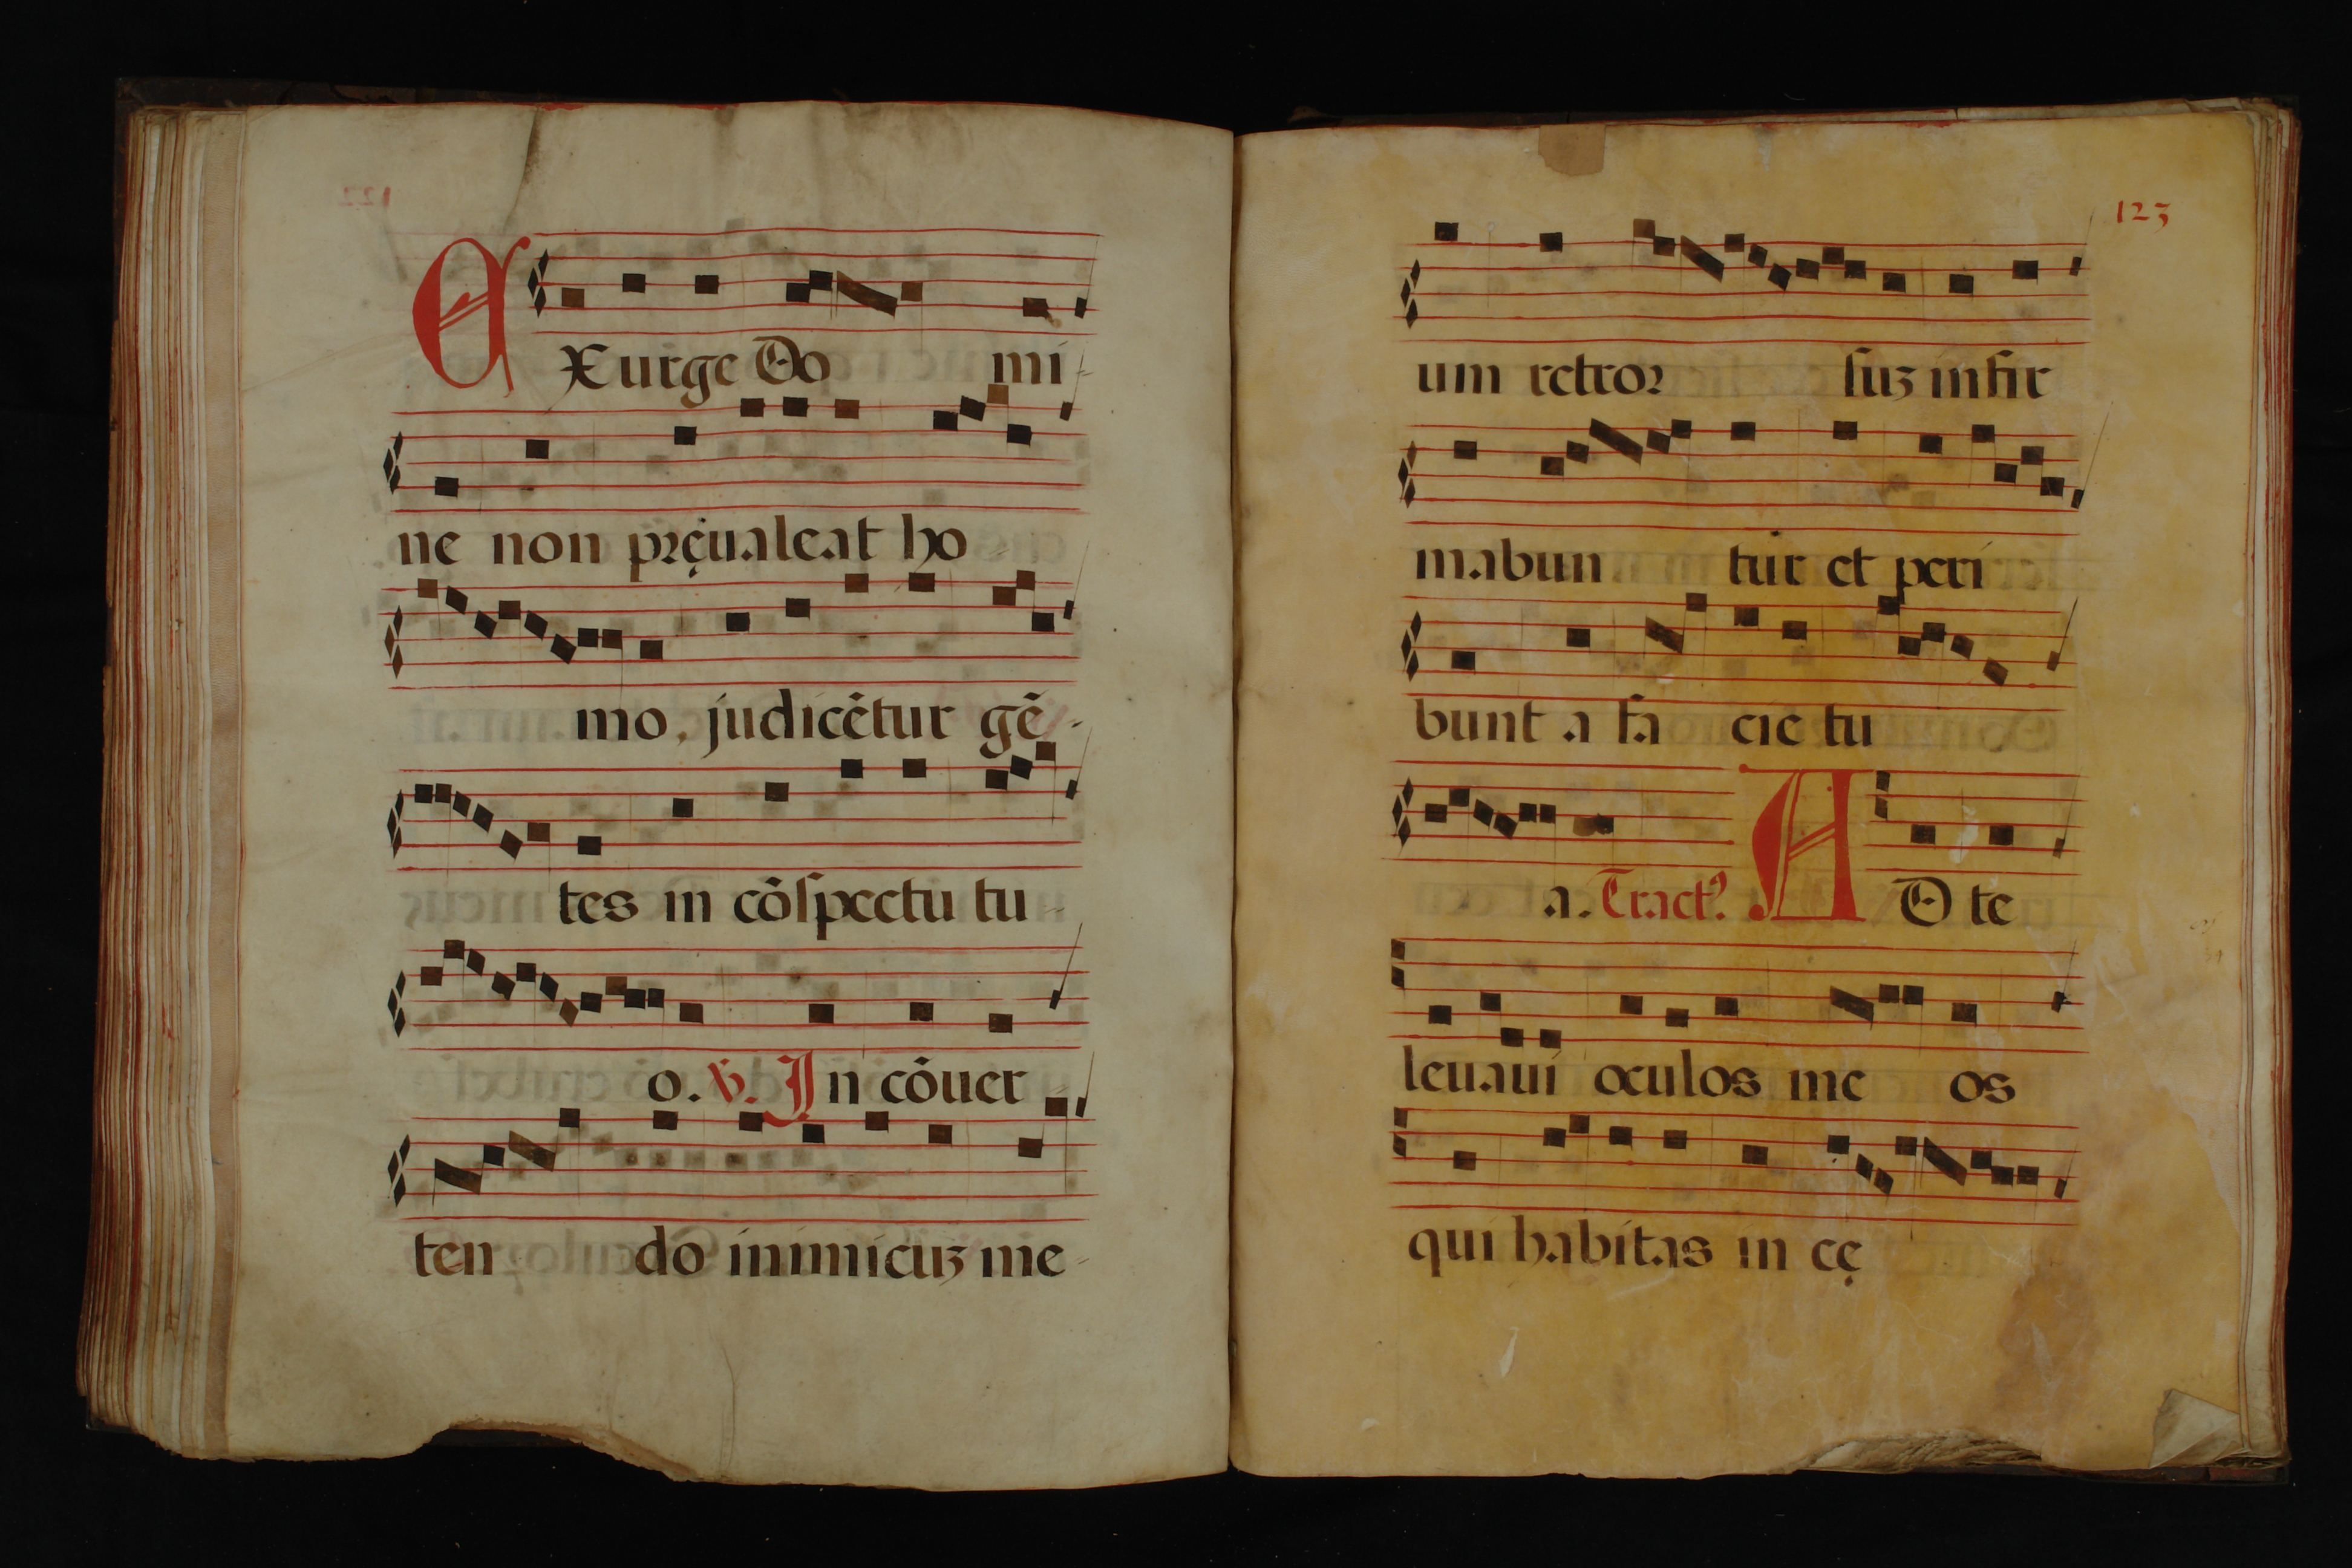 EXurge Do mi-
ne non pręualeat ho-
mo, judicẽtur gẽ-
tes in cõſpectu tu-
o. ℣. In cõuer
ten do inimicuꝫ me-
123
um retror ſuꝫ infir
mabun tur et peri
bunt a fa cie tu
a. Tract⁹. AD te
leuaui oculos me os
qui habitas in cę